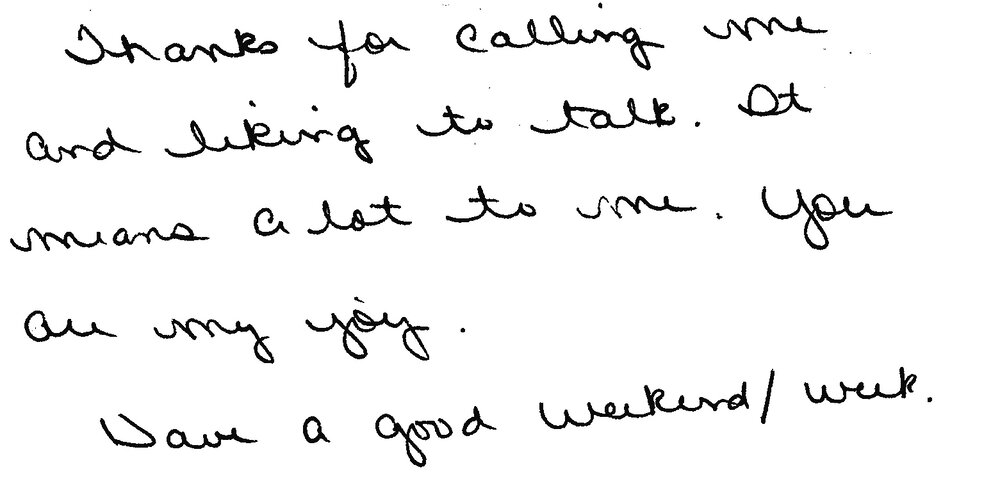 Thanks for calling me
and liking to talk. It
means a lot to me. You
are my joy.
Have a good weekend/week.